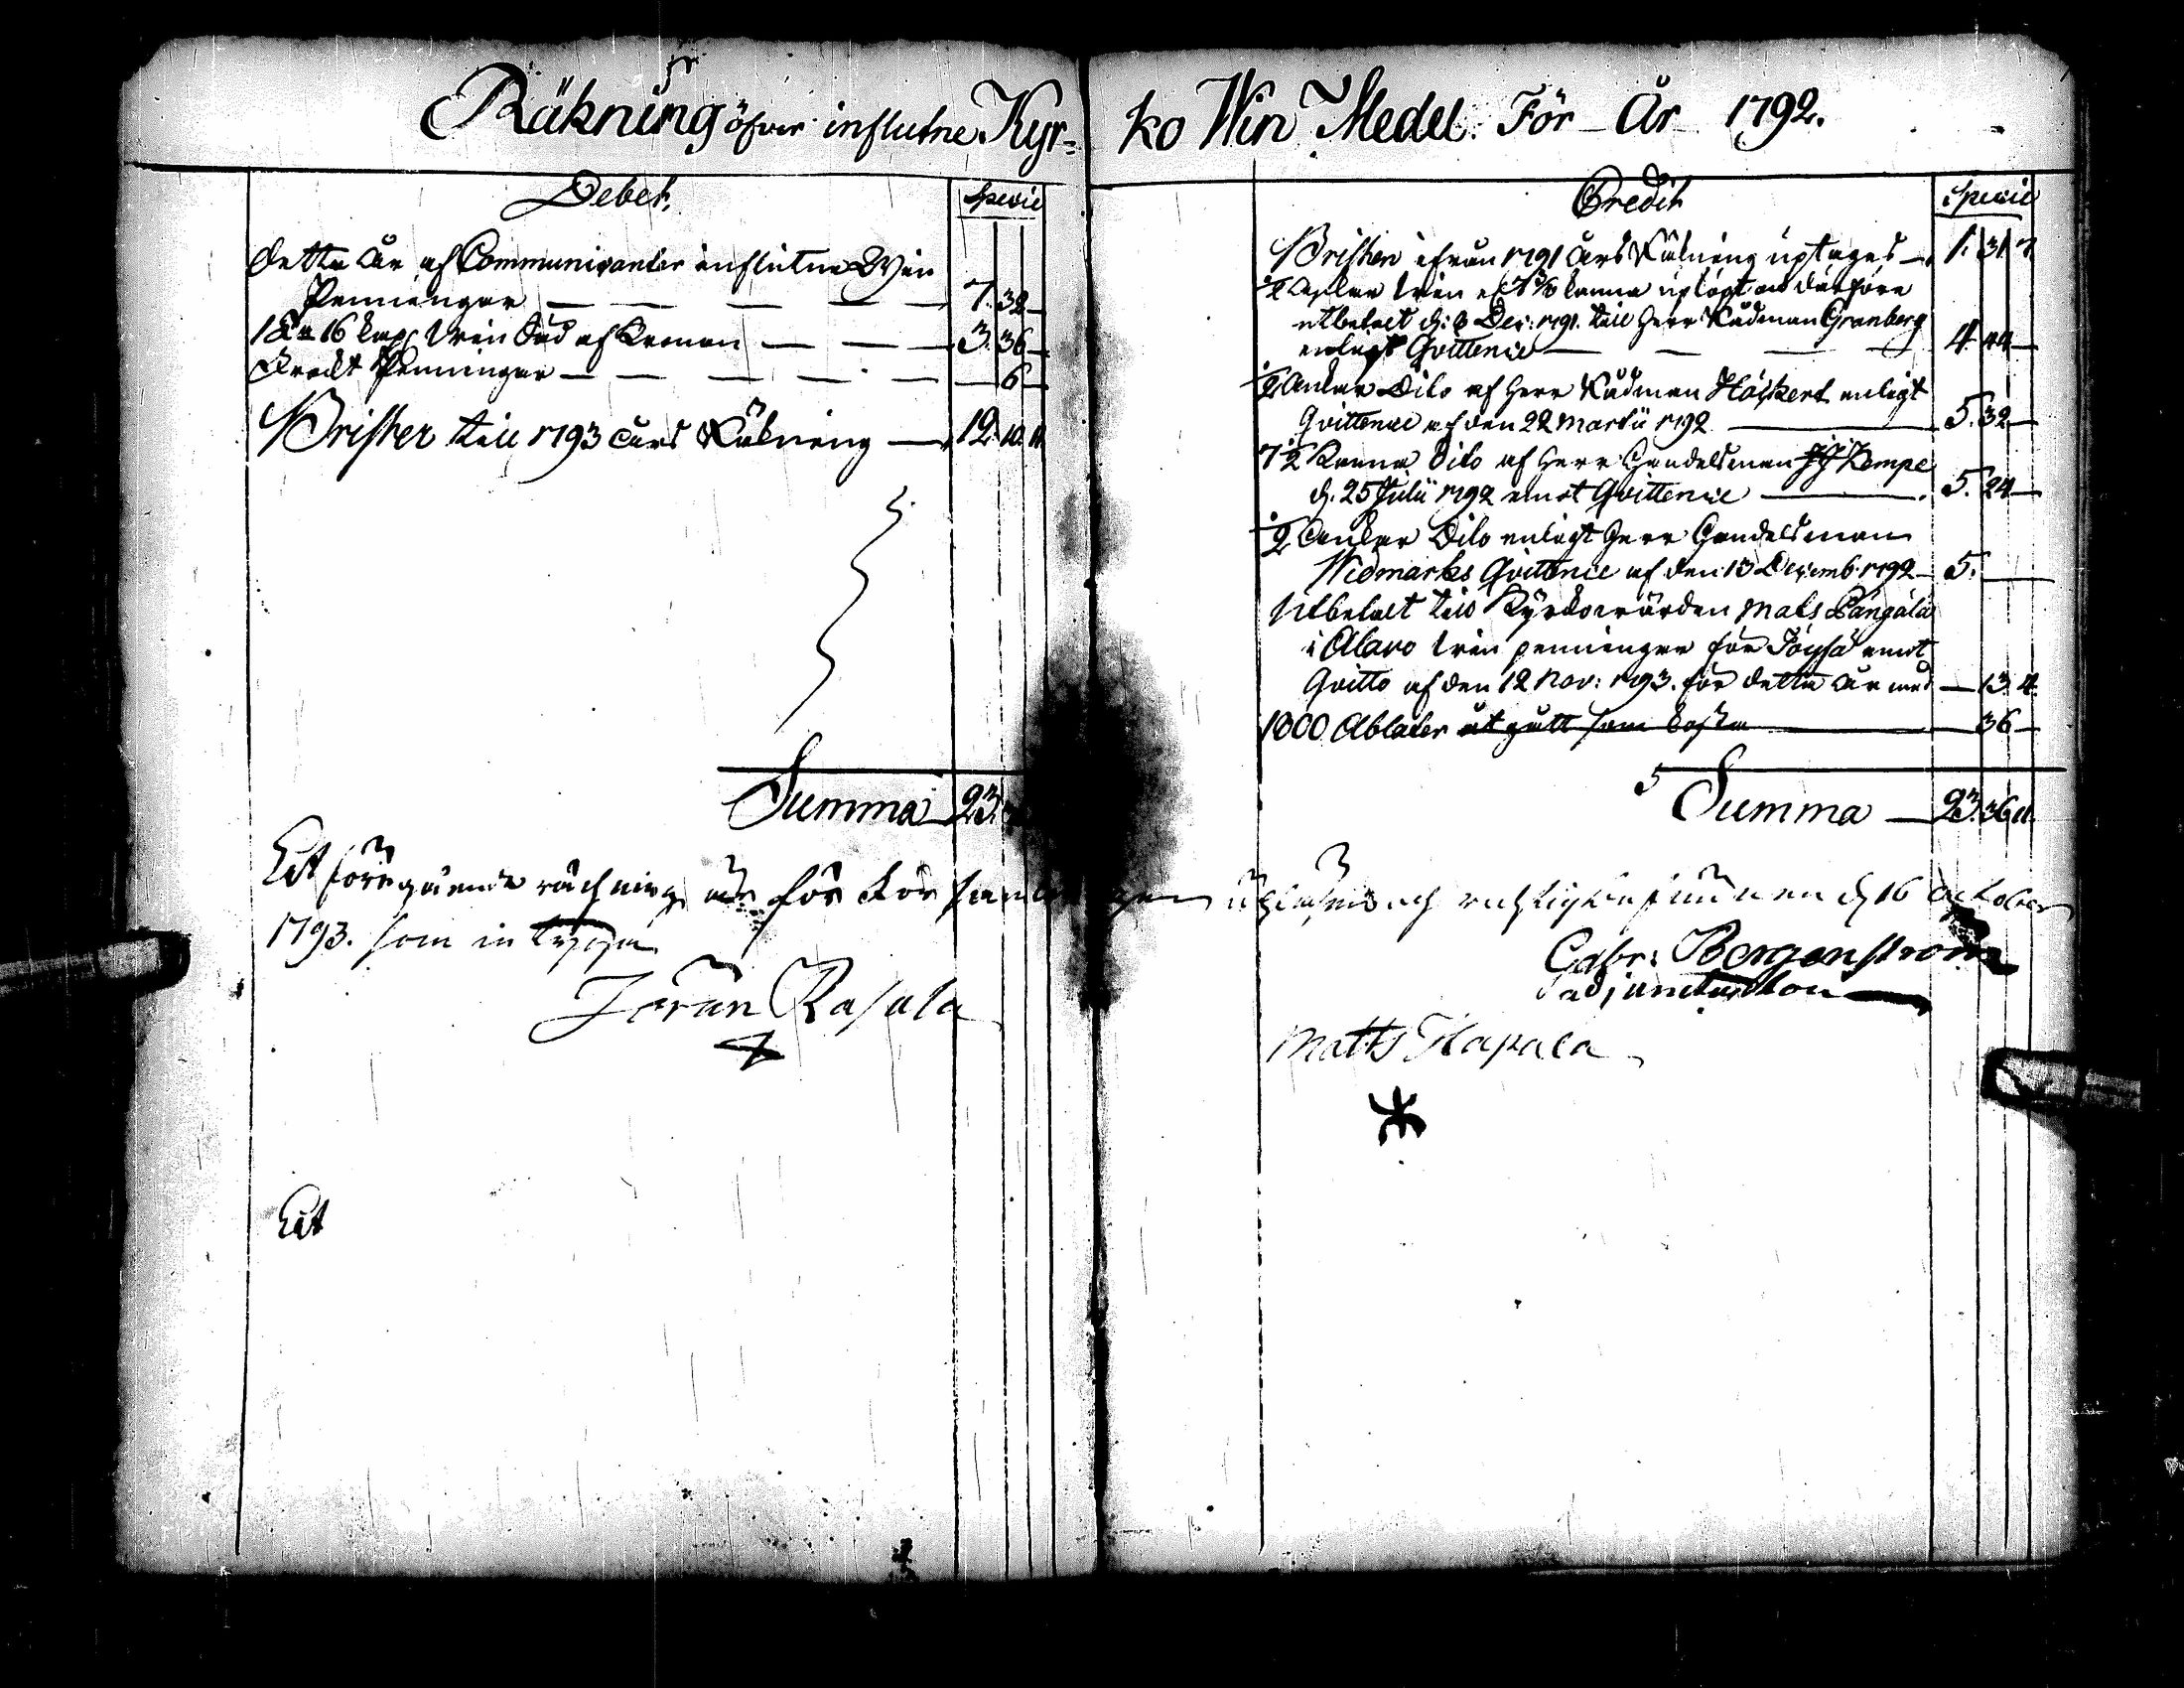 Räkning öfver influtne Kyrko Win Medel. För År 1792.
Debet.
Specie
Detta År af Communicanter influtne Win
Penningar 7. 32
16 kap Win Säd af 3. 36
Penningar 6
Brister till 1793 Års Räkning 12. 10. 11
Summa 23.
Credit
Specie
Bristen ifrån 1791 Års Räkning uptages 1. 31. 7
½ Ankar Win kanna uplöpt och därföre
utbetalt d: 3 Dec: 1791. till Herr Rådman Granberg
enligt Qvittence 4. 44
½ Ankar Dito af Herr Rådman Höckert enligt
Qvittence af den 22 Martii 1792 5. 32
7½ Kanna Dito af Herr Handelsman JJ Kempe
d. 25 Julii 1792 emot Qvittence 5. 24
½ Ankar Dito enligt Herr Handelsman
Widmarks Qvittence af den 13 Decemb. 1792 5.
Utbetalt till Kyrkowärden Mats Pångåla
i Alavo Win penningar för Töysä emot
Qvitto af den 12 Nov: 1793. för detta År med 13. 4
1000 Ablater utgått som kosta 36
Summa 23. 36. 11.
föregående räckning är för församlingen upläsen och richtig befunnen d 16 october
1793. som
Gabr: Bergenstrom
adjunctus
Jöran Rasala
Matts Hapala